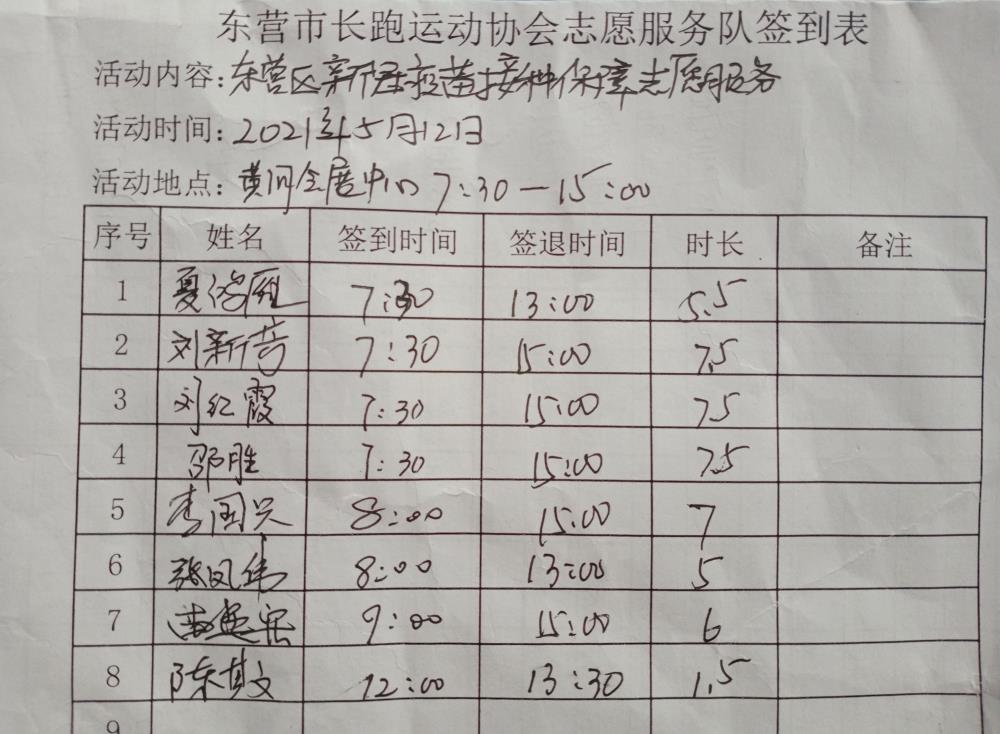 东营市长跑运动协会志愿服务队签到表
活动内容:东营区新冠疫苗接种保障志愿服务
活动时间:2021年5月12日
活动地点:黄河会展中心 7:30—15:00
序号 姓名 签到时间 签退时间 时长 备注
1 夏鸿雁 7:30 13:00 5.5
2 刘新 7:30 15:00 7.5
3 刘红霞 7:30 15:00 7.5
4 邵胜 7:30 15:00 7.5
5 李国兴 8:00 15:00 7
6 张凤伟 8:00 13:00 5
7 9:00 15:00 6
8 陈其文 12:00 13:30 1.5
9